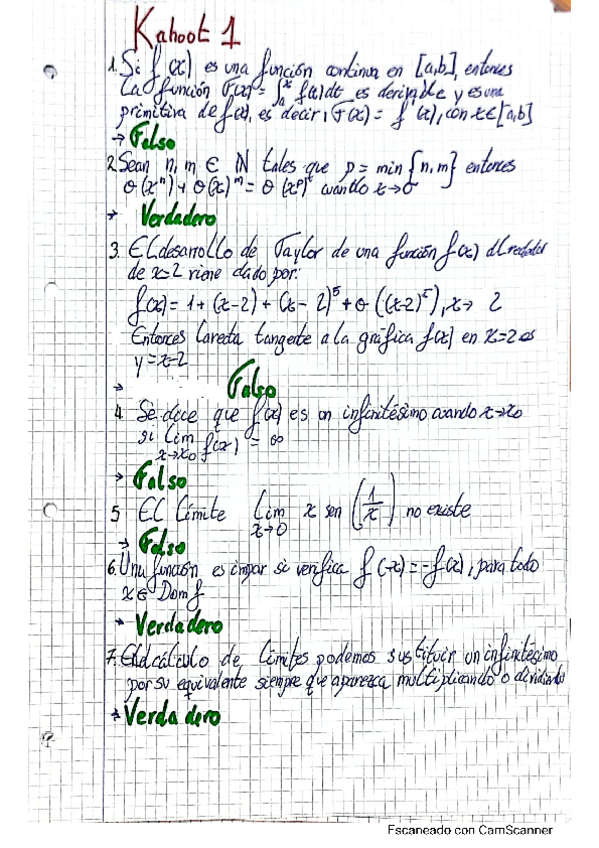 Kahoot 1
1. Si f(x) es una función continua en [a,b], entonces
La función F(x) = ∫ₐˣ f(t)dt es derivable y es una
primitiva de f(x), es decir, F(x) = f'(x), con x ∈ [a,b]
→ Falso
2. Sean n, m ∈ N tales que p = min {n, m} entonces
o(xⁿ) + o(x)ᵐ = o(xᵖ) cuando x→0
→ Verdadero
3. El desarrollo de Taylor de una función f(x) alrededor
de x=2 viene dado por:
f(x) = 1 + (x-2) + (x-2)⁵ + o((x-2)⁵), x→ 2
Entonces la recta tangente a la gráfica f(x) en x=2 es
y = x-2
→ Falso
4. Se dice que f(x) es un infinitésimo cuando x→x₀
si Lim f(x) = ∞
x→x₀
→ Falso
5 El Límite Lim x sen (1/x) no existe
x→0
→ Falso
6. Una función es impar si verifica f(-x) = -f(x), para todo
x ∈ Dom f
→ Verdadero
7. cálculo de límites podemos sustituir un infinitésimo
por su equivalente siempre que aparezca multiplicando o dividiendo
→ Verdadero
Escaneado con CamScanner